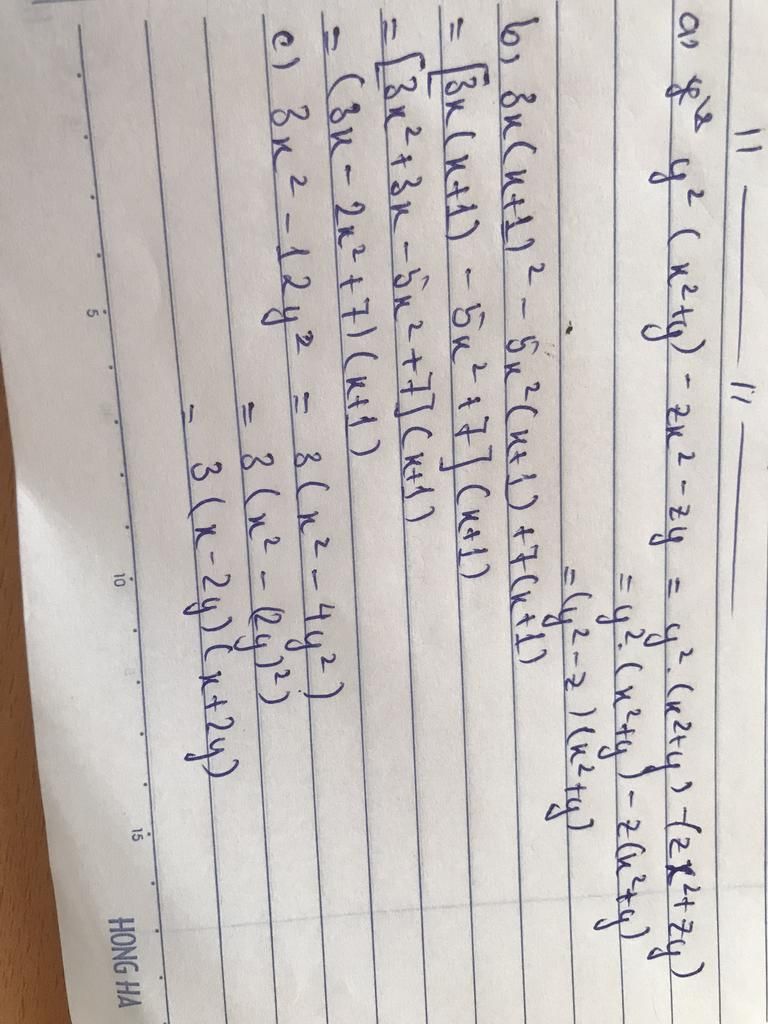 a, y² (x²+y) - zx² - zy = y².(x²+y) - (zx²+zy)
= y².(x²+y) - z(x²+y)
= (y²-z)(x²+y)
b, 3x(x+1)² - 5x²(x+1) + 7(x+1)
= [3x(x+1) - 5x² + 7](x+1)
= [3x² + 3x - 5x² + 7](x+1)
= (3x - 2x² + 7)(x+1)
c) 3x² - 12y² = 3(x² - 4y²)
= 3(x² - (2y)²)
= 3(x - 2y)(x + 2y)
5 10 15
HONG HA